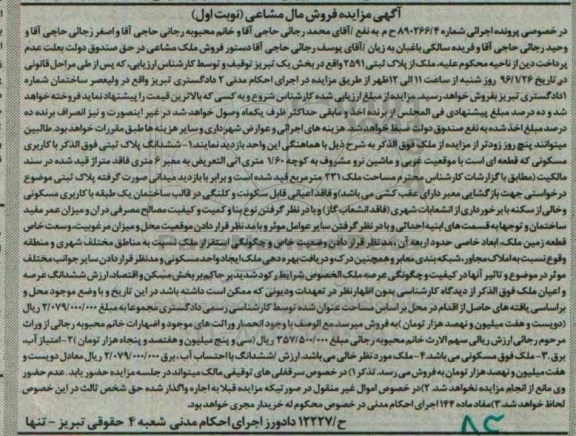 آگهی مزایده فروش مال مشاعی (نوبت اول)
در خصوص پرونده اجرائی شماره ۸۹۰۲۶۶/۴ ح م به نفع /آقای محمد رجائی حاجی آقا و خانم محبوبه رجائی حاجی آقا و اصغر رجائی حاجی آقا و
وحید رجائی حاجی آقا و فریده سالکی باغبان به زیان /آقای یوسف رجائی حاجی آقا دستور فروش ملک مشاعی در حق صندوق دولت بعلت عدم
پرداخت دین از ناحیه محکوم علیه، ملک از پلاک ثبتی ۲۵۹۱ واقع در بخش یک تبریز توقیف و توسط کارشناس ارزیابی، که پس از طی مراحل قانونی
در تاریخ ۹۶/۱/۲۶ روز شنبه از ساعت ۱۱ الی ۱۲ظهر از طریق مزایده در اجرای احکام مدنی ۲ دادگستری تبریز واقع در ولیعصر ساختمان شماره
۱دادگستری تبریز بفروش خواهد رسید. مزایده از مبلغ ارزیابی شده کارشناس شروع و به کسی که بالاترین قیمت را پیشنهاد نماید فروخته خواهد
شد و ده درصد مبلغ پیشنهادی فی المجلس از برنده اخذ و مابقی حداکثر ظرف یکماه وصول خواهد شد در غیر اینصورت و نیز انصراف برنده ده
درصد مبلغ اخذ شده به نفع صندوق دولت ضبط خواهد شد. هزینه های اجرائی و عوارض شهرداری و سایر هزینه ها طبق مقررات خواهد بود. طالبین
میتوانند پنج روز زودتر از مزایده از ملک فوق الذکر به شرح ذیل با هماهنگی این واحد بازدید نمایند:۱- ششدانگ پلاک ثبتی فوق الذکر با کاربری
مسکونی که قطعه ای است با موقعیت غربی و ماشین نرو مشروف به کوچه ۱/۶۰ متری التی التعریض به معبر ۶ متری فاقد متراژ قید شده در سند
مالکیت (مطابق با گزارشات کارشناس محترم مساحت ملک ۲۳۱ مترمربع قید شده است و برابر با بازدید میدانی صورت گرفته پلاک ثبتی موضوع
درخواستی جهت بازگشایی معبر دارای عقب کشی می باشد)و فاقد اعیانی قابل سکونت و کلنگی در قالب ساختمان یک طبقه با کاربری مسکونی
و خالی از سکنه با برخورداری از انشعابات شهری (فاقد انشعاب گاز) و با در نظر گرفتن نوع بنا و کمیت و کیفیت مصالح مصرفی در آن و میزان عمر مفید
ساختمان و توجها به قسمت های ابنیه احداثی و با در نظر گرفتن سایر عوامل موثر و با مد نظر قرار دادن موقعیت محل و میزان مرغوبیت، وسعت خاص
قطعه زمین ملک، ابعاد خاصی حدود اربعه آن، مد نظر قرار دادن وضعیت خاص و چگونگی استقرار ملک نسبت به مناطق مختلف شهری و منطقه
وقوع نسبت به املاک مجاور، شبکه بندی معابر و همچنین درک و دریافت بهره دهی ملک ایجاد واحد مسکونی و مد نظر قرار دادن سایر جوانب مختلف
موثر در موضوع و تاثیر آنها در کیفیت و چگونگی عرصه ملک الخصوص شرایط رکود شدید بر حاکم بر بخش مسکن و اقتصاد، ارزش ششدانگ عرصه
و اعیان ملک فوق الذکر از دیدگاه کارشناسی بدون اظهارنظر در تعهدات و دیونی که ممکن است داشته باشد در این تاریخ و با وضع موجود محل و
براساس یافته های حاصل از اقدام در محل بر اساس مساحت عنوان شده توسط کارشناسی رسمی دادگستری مجموعا به مبلغ ۲/۰۷۹/۰۰۰/۰۰۰ ریال
(دویست و هفت میلیون و نهصد هزار تومان) به فروش میرسد مع الوصف با وجود انحصار وراثت های موجود و اظهارات خانم محبوبه رجائی از وراث
مرحوم رجائی ارزش ریالی سهم الارث خانم محبوبه رجائی مبلغ ۳۵۷/۵۰۰/۰۰۰ ریال (سی و پنج میلیون و هفتصد و پنجاه هزار تومان) ۲-امتیاز آب،
برق. ۳- ملک فوق مسکونی می باشد. ۴- ملک مورد نظر خالی می باشد. ارزش /ششدانگ با احتساب آب، برق ۲/۰۷۹/۰۰۰/۰۰۰ ریال معادل دویست و
هفت میلیون و نهصد هزار تومان به فروش می رسد. تذکر:۱) در خصوص سرقفلی های توقیفی مالک میتواند در جلسه مزایده حضور یابد. عدم حضور
وی مانع از انجام مزایده نخواهد شد. ۲)در خصوص اموال غیر منقول در صورتیکه مزایده قبلا به اجاره واگذار شده حق شخص ثالث در این خصوص
لحاظ خواهد شد. ۳)مفاد ماده ۱۴۴ اجرای احکام مدنی در خصوص محکوم له خریدار مجری خواهد بود.
ح/۱۲۲۲۷ دادورز اجرای احکام مدنی شعبه ۴ حقوقی تبریز - تنها